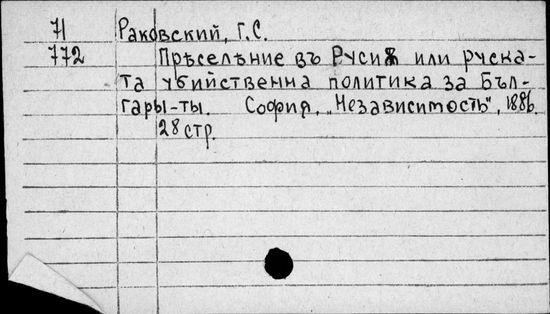 71 Раковский, Г.С.
772 Прѣселѣние въ Русиѫ или руска-
та убийственна политика за Бъл-
гары-ты. София, „Независимость", 1886.
28 стр.